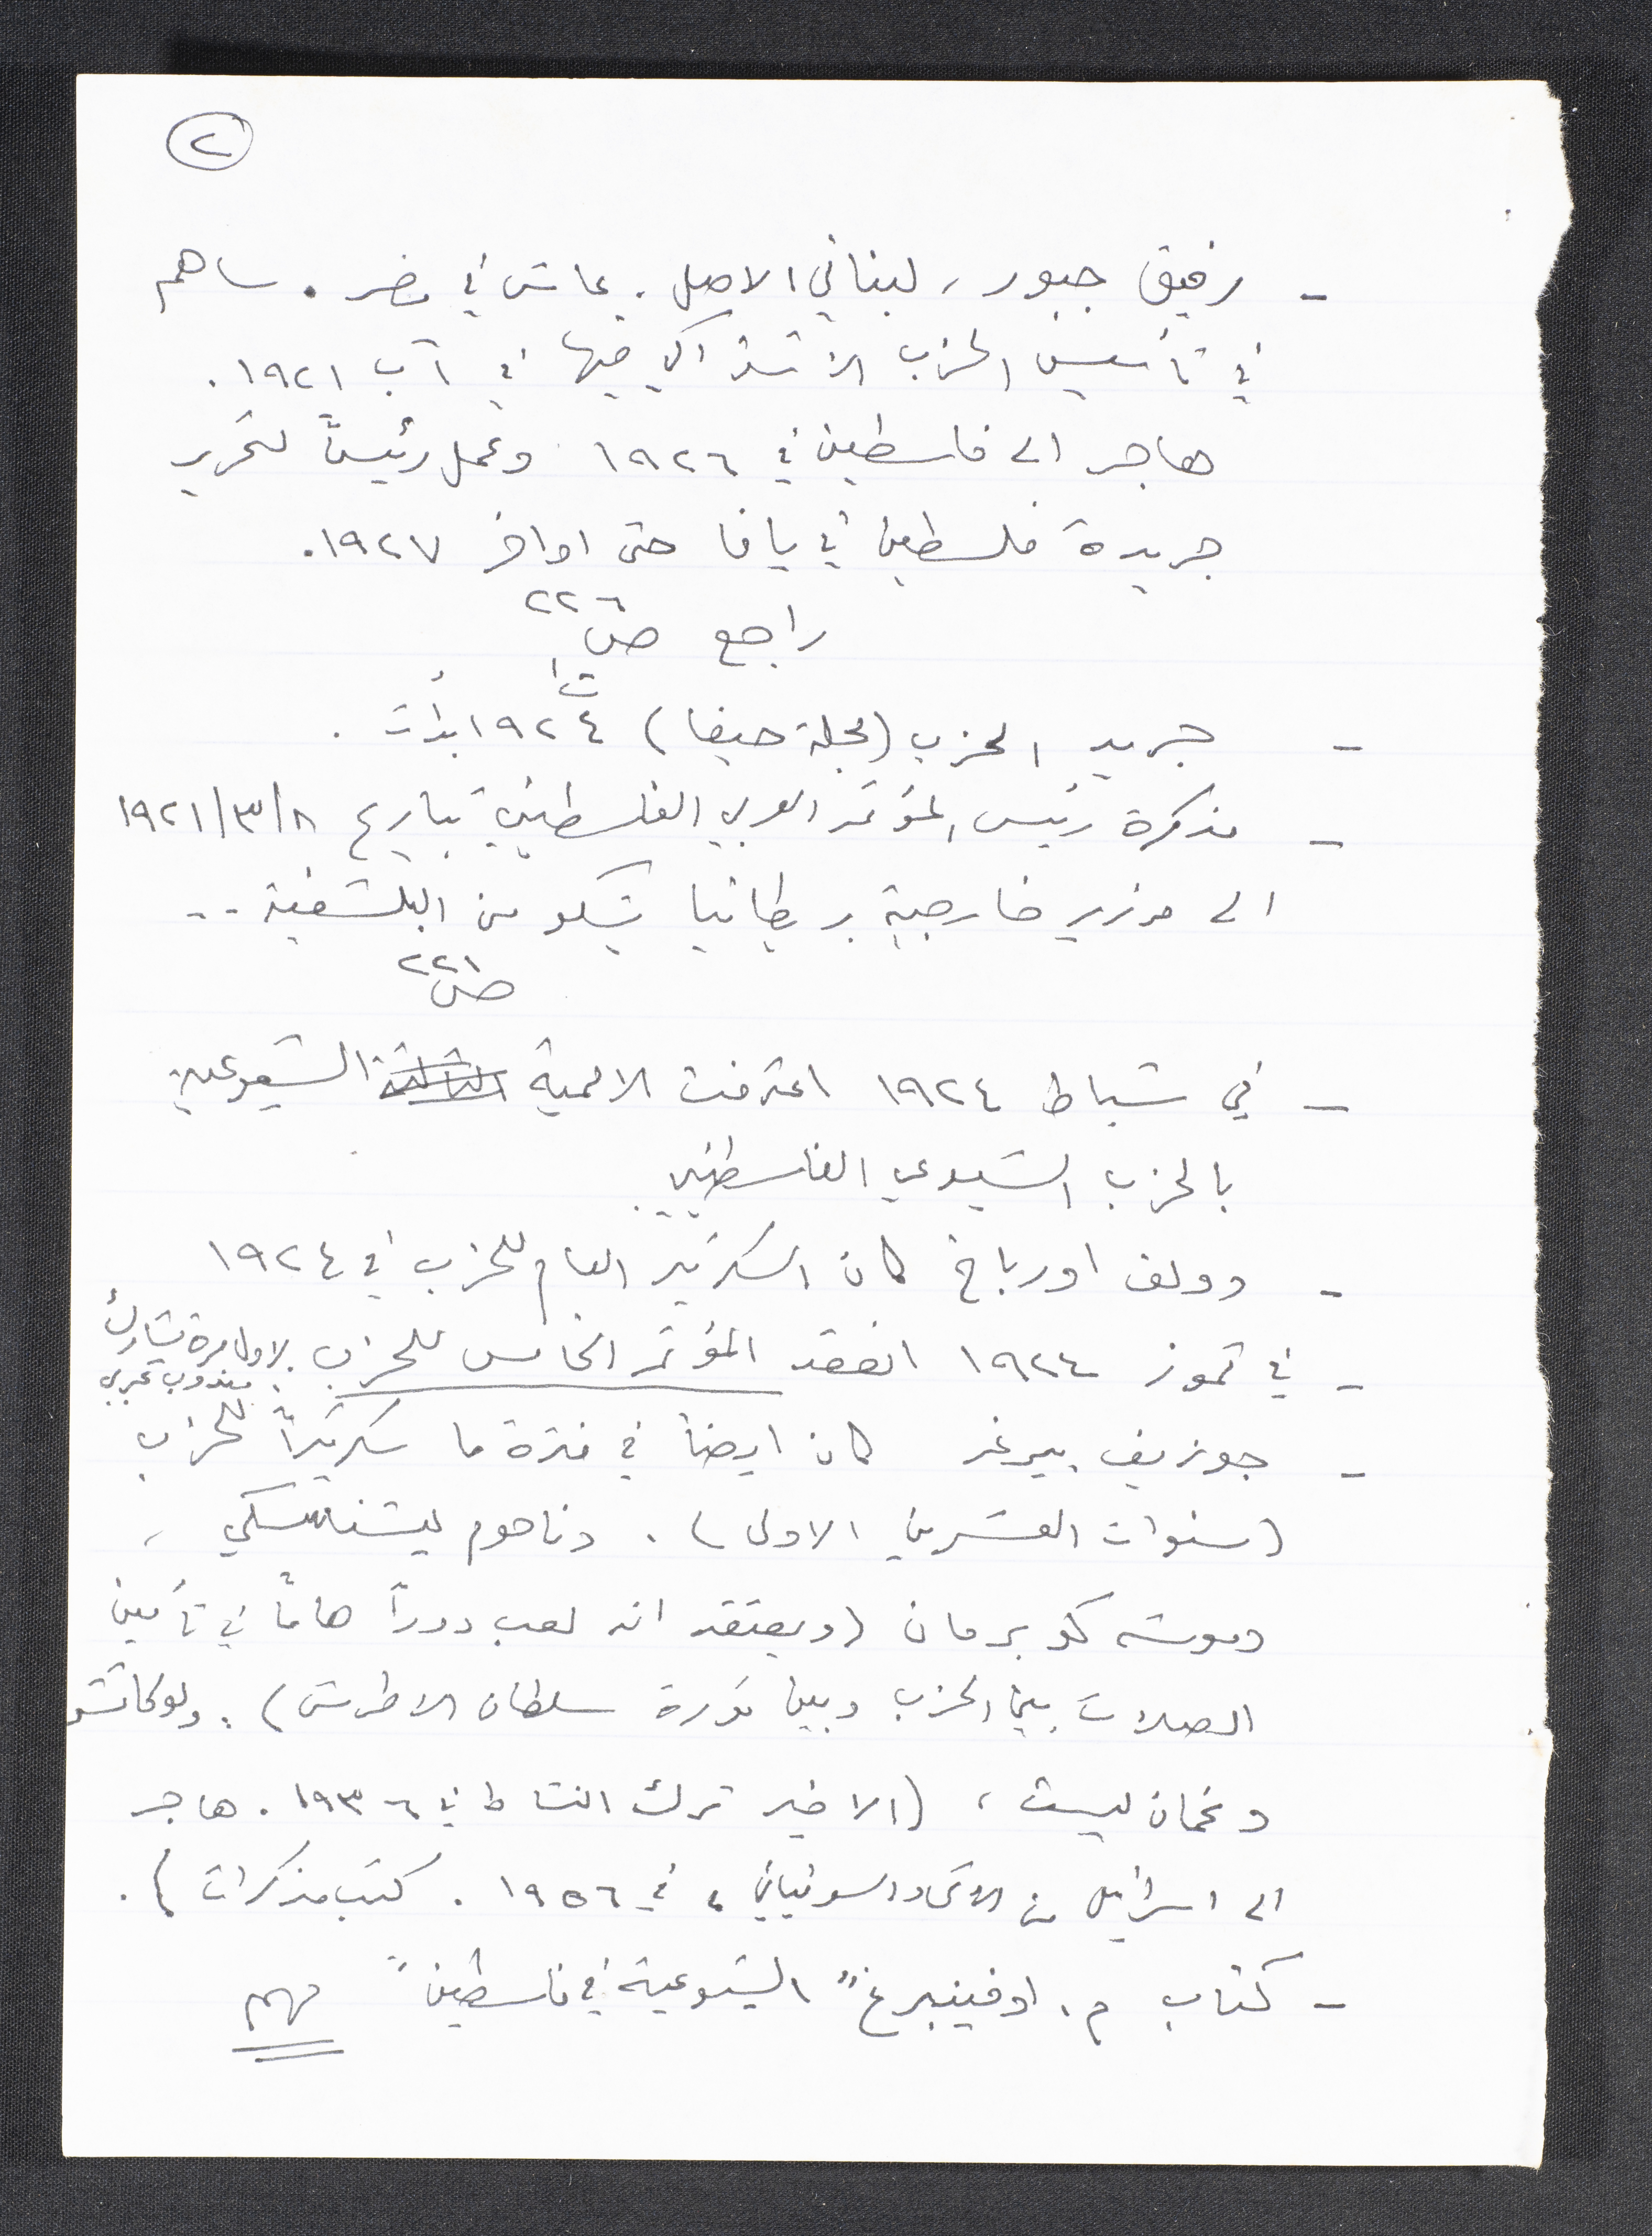 ٢
- رفيق جبور، لبناني الاصل. عاش في مصر. ساهم
في تأسيس الحزب الاشتراكي فيها في آب ١٩٢١.
هاجر الى فلسطين في ١٩٢٦ وعمل رئيساً لتحرير
جريدة فلسطين في يافا حتى اواخر ١٩٢٧.
راجع ص ٢٢٦
- جريد الحزب (مجلة حيفا) ت١ ١٩٢٤ بدأت.
- مذكرة رئيس المؤتمر العربي الفلسطيني بتاريخ ١٩٢١/٣/٨
الى وزير خارجية بريطانيا يشكو من البلشفية..
ص ٢٢١
- في شباط ١٩٢٤ اعترفت الاممية الثالثة الشيوعية
بالحزب الشيوعي الفلسطيني.
- وولف اورباخ كان السكرتير العام للحزب في ١٩٢٤
- في تموز ١٩٢٤ انعقد المؤتمر الخامس للحزب. لاول مرة يشارك
مندوب عربي
- جوزيف بيرغر كان ايضاً في فترة ما سكرتيراً للحزب
(سنوات العشرين الاولى). وناحوم ليشنسكي،
وموشه كوبرمان (ويعتقد انه لعب دوراً هاماً في تأمين
الصلات بين الحزب وبين ثورة سلطان الاطرش). ولوكاتشر
ونحمان ليست، (الاخير ترك النشاط في ١٩٣٦. هاجر
الى اسرائيل من الاتحاد السوفياتي، في ١٩٥٦. كتب مذكرات).
- كتاب م. اوفينبرغ "الشيوعية في فلسطين" مهم